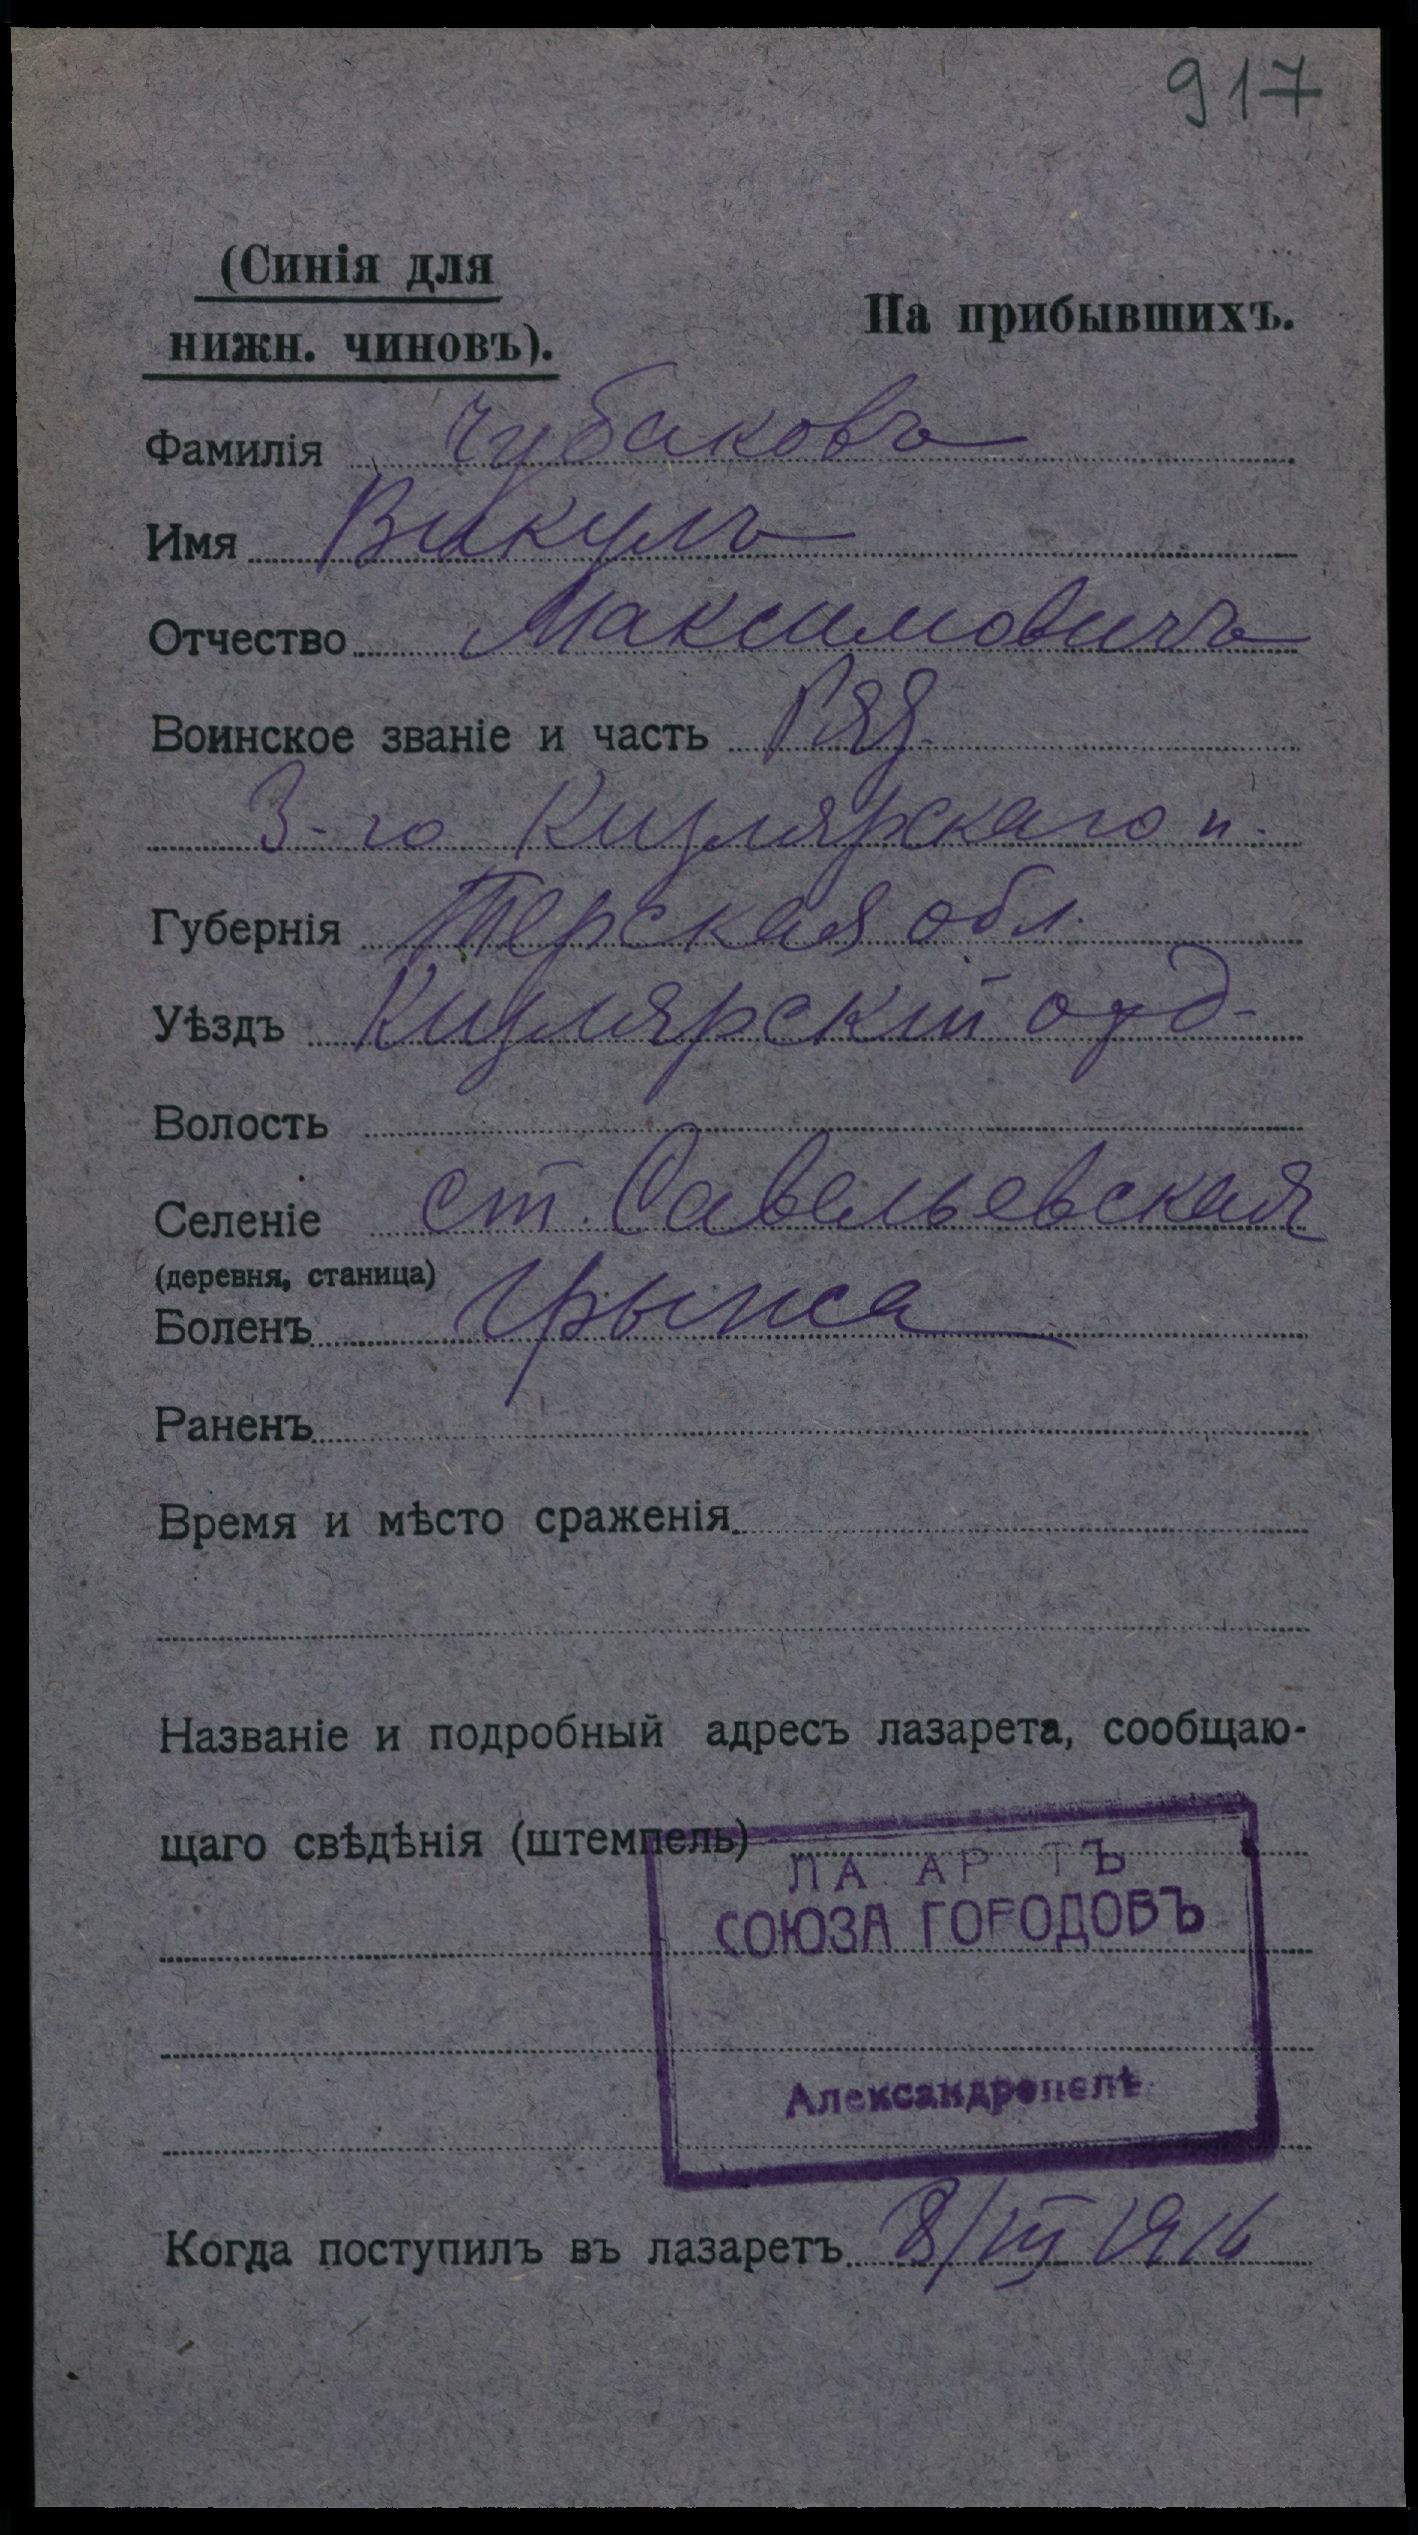 917
(Синія для
нижн. чиновъ).
На прибывшихъ.
Фамилія Чубаковъ
Имя Викулъ
Отчество Максимовичъ
Воинское званіе и часть Ряд.
3-го Кизлярскаго п.
Губернія Терская обл.
Уѣздъ Кизлярскій отд-
Волость
Селеніе ст. Савельевская
(деревня, станица)
Боленъ грыжа
Раненъ
Время и мѣсто сраженія
Названіе и подробный адресъ лазарета, сообщаю-
щаго свѣдѣнія (штемпель)
ЛА АР ТЪ
СОЮЗА ГОРОДОВЪ
Александрополѣ
Когда поступилъ въ лазаретъ 8/III 1916